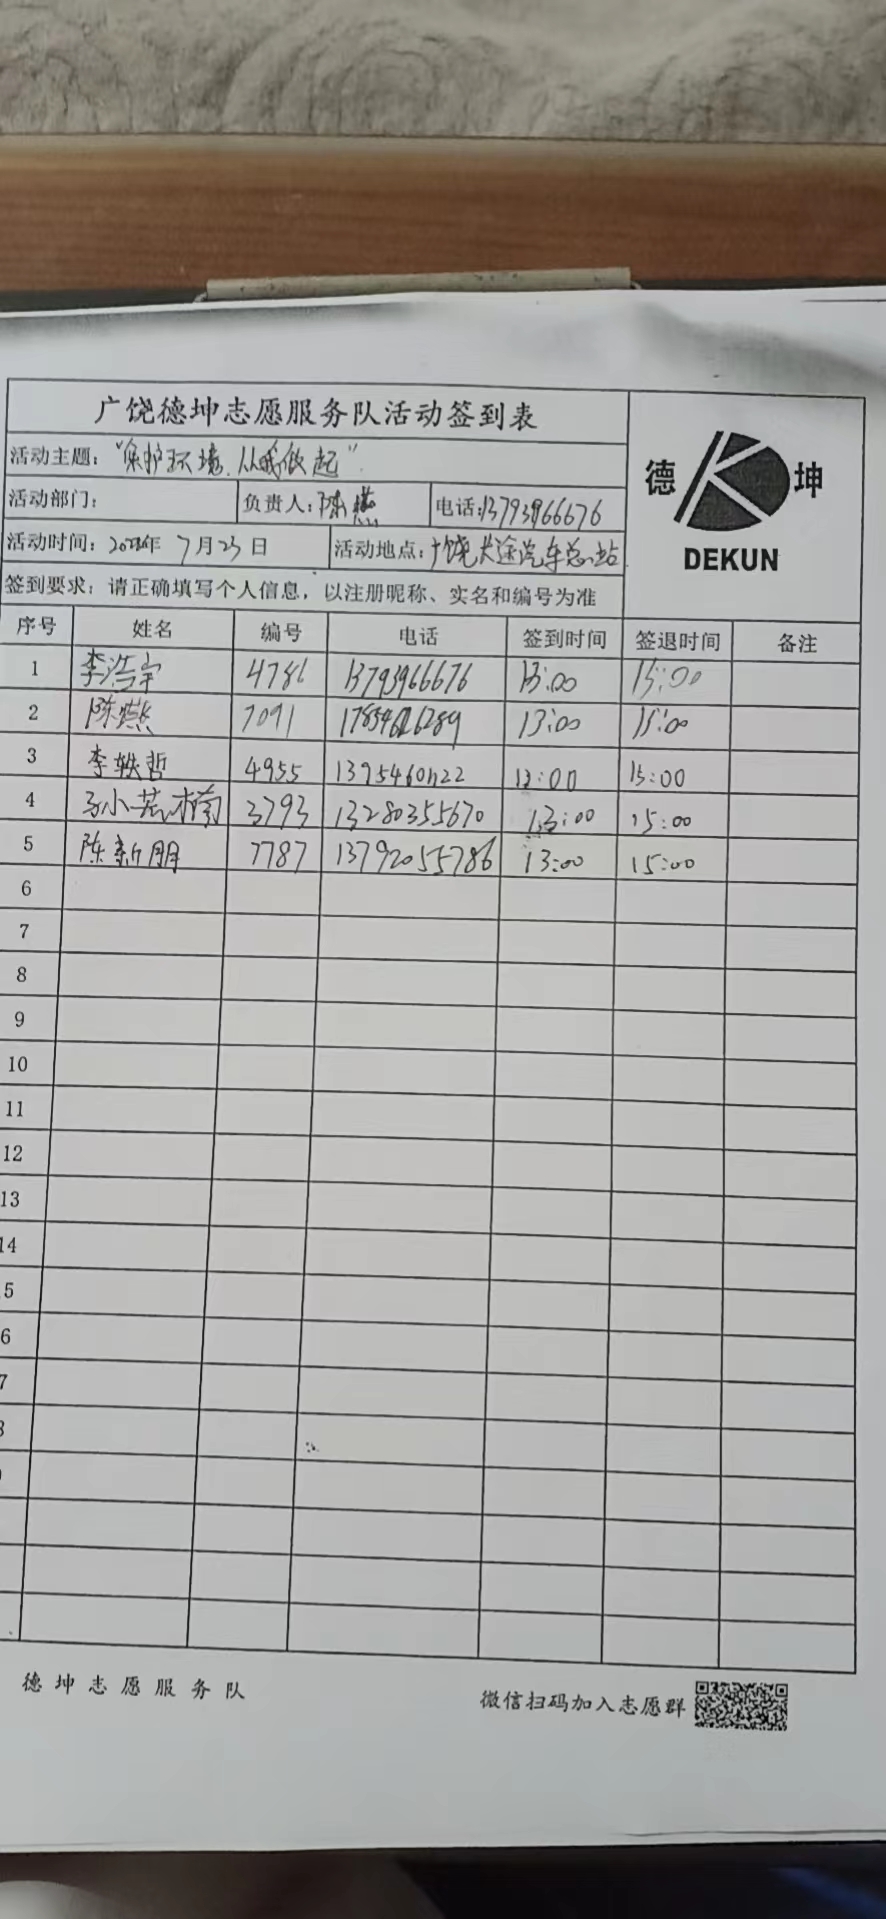 广饶德坤志愿服务队活动签到表
德 坤
DEKUN
活动主题："保护环境.从我做起"
活动部门： 负责人：陈燃 电话：13793966676
活动时间： 年 7月23日 活动地点：广饶长途汽车总站
签到要求：请正确填写个人信息，以注册昵称、实名和编号为准
序号 姓名 编号 电话 签到时间 签退时间 备注
1 李浩宇 4786 13793966676 13:00 15:00
2 陈燃 7091 13:00 15:00
3 李轶哲 4955 13954601122 13:00 15:00
4 3793 13280355670 13:00 15:00
5 陈新朋 7787 13792055786 13:00 15:00
6
7
8
9
10
11
12
13
14
5
6
7
8
德坤志愿服务队 微信扫码加入志愿群